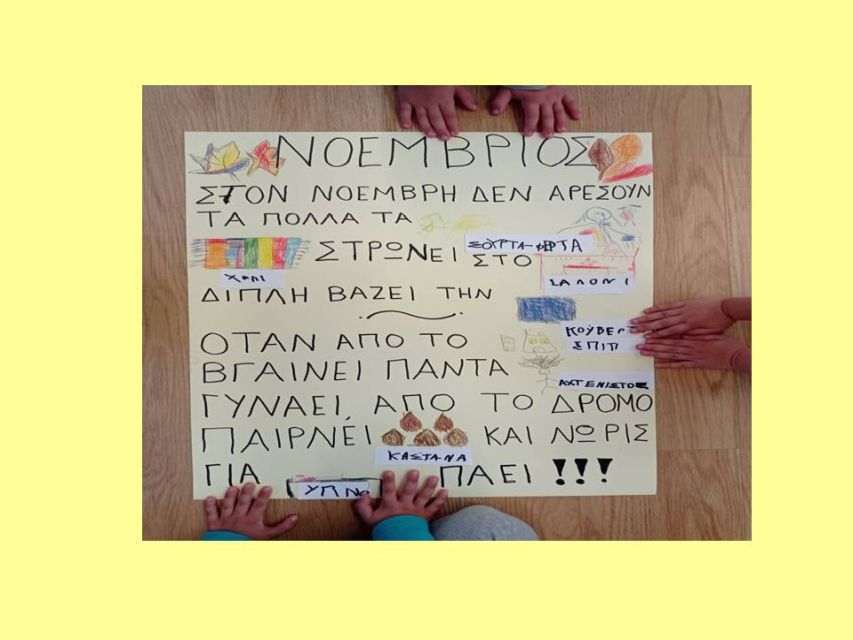 ΝΟΕΜΒΡΙΟΣ
ΣΤΟΝ ΝΟΕΜΒΡΗ ΔΕΝ ΑΡΕΣΟΥΝ
ΤΑ ΠΟΛΛΑ ΤΑ
ΣΟΥΡΤΑ-ΦΕΡΤΑ
ΧΑΛΙ
ΣΤΡΩΝΕΙ ΣΤΟ
ΣΑΛΟΝΙ
ΔΙΠΛΗ ΒΑΖΕΙ ΤΗΝ
ΚΟΥΒΕΡ
ΟΤΑΝ ΑΠΟ ΤΟ
ΣΠΙΤΙ
ΒΓΑΙΝΕΙ ΠΑΝΤΑ
ΑΧΤΕΝΙΣΤΟΣ
ΓΥΝΑΕΙ, ΑΠΟ ΤΟ ΔΡΟΜΟ
ΠΑΙΡΝΕΙ ΚΑΙ ΝΩΡΙΣ
ΚΑΣΤΑΝΑ
ΓΙΑ ΥΠΝΟ ΠΑΕΙ !!!